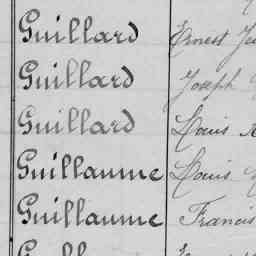 Guillard Ernest
Guillard Joseph
Guillard Louis
Guillaume Louis
Guillaume Francis